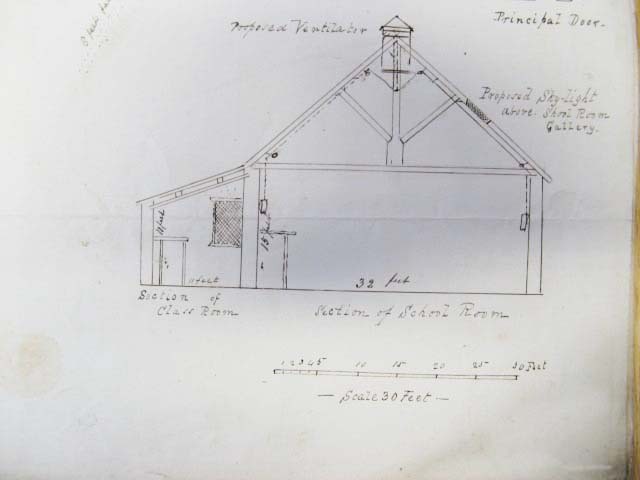 Proposed Ventilator
Principal Door.
Proposed Sky-light
above School Room
Gallery.
15 feet
32 feet
Section of
Class Room
Section of School Room
1 2 3 4 5 10 15 20 25 30 Feet
— Scale 30 Feet —